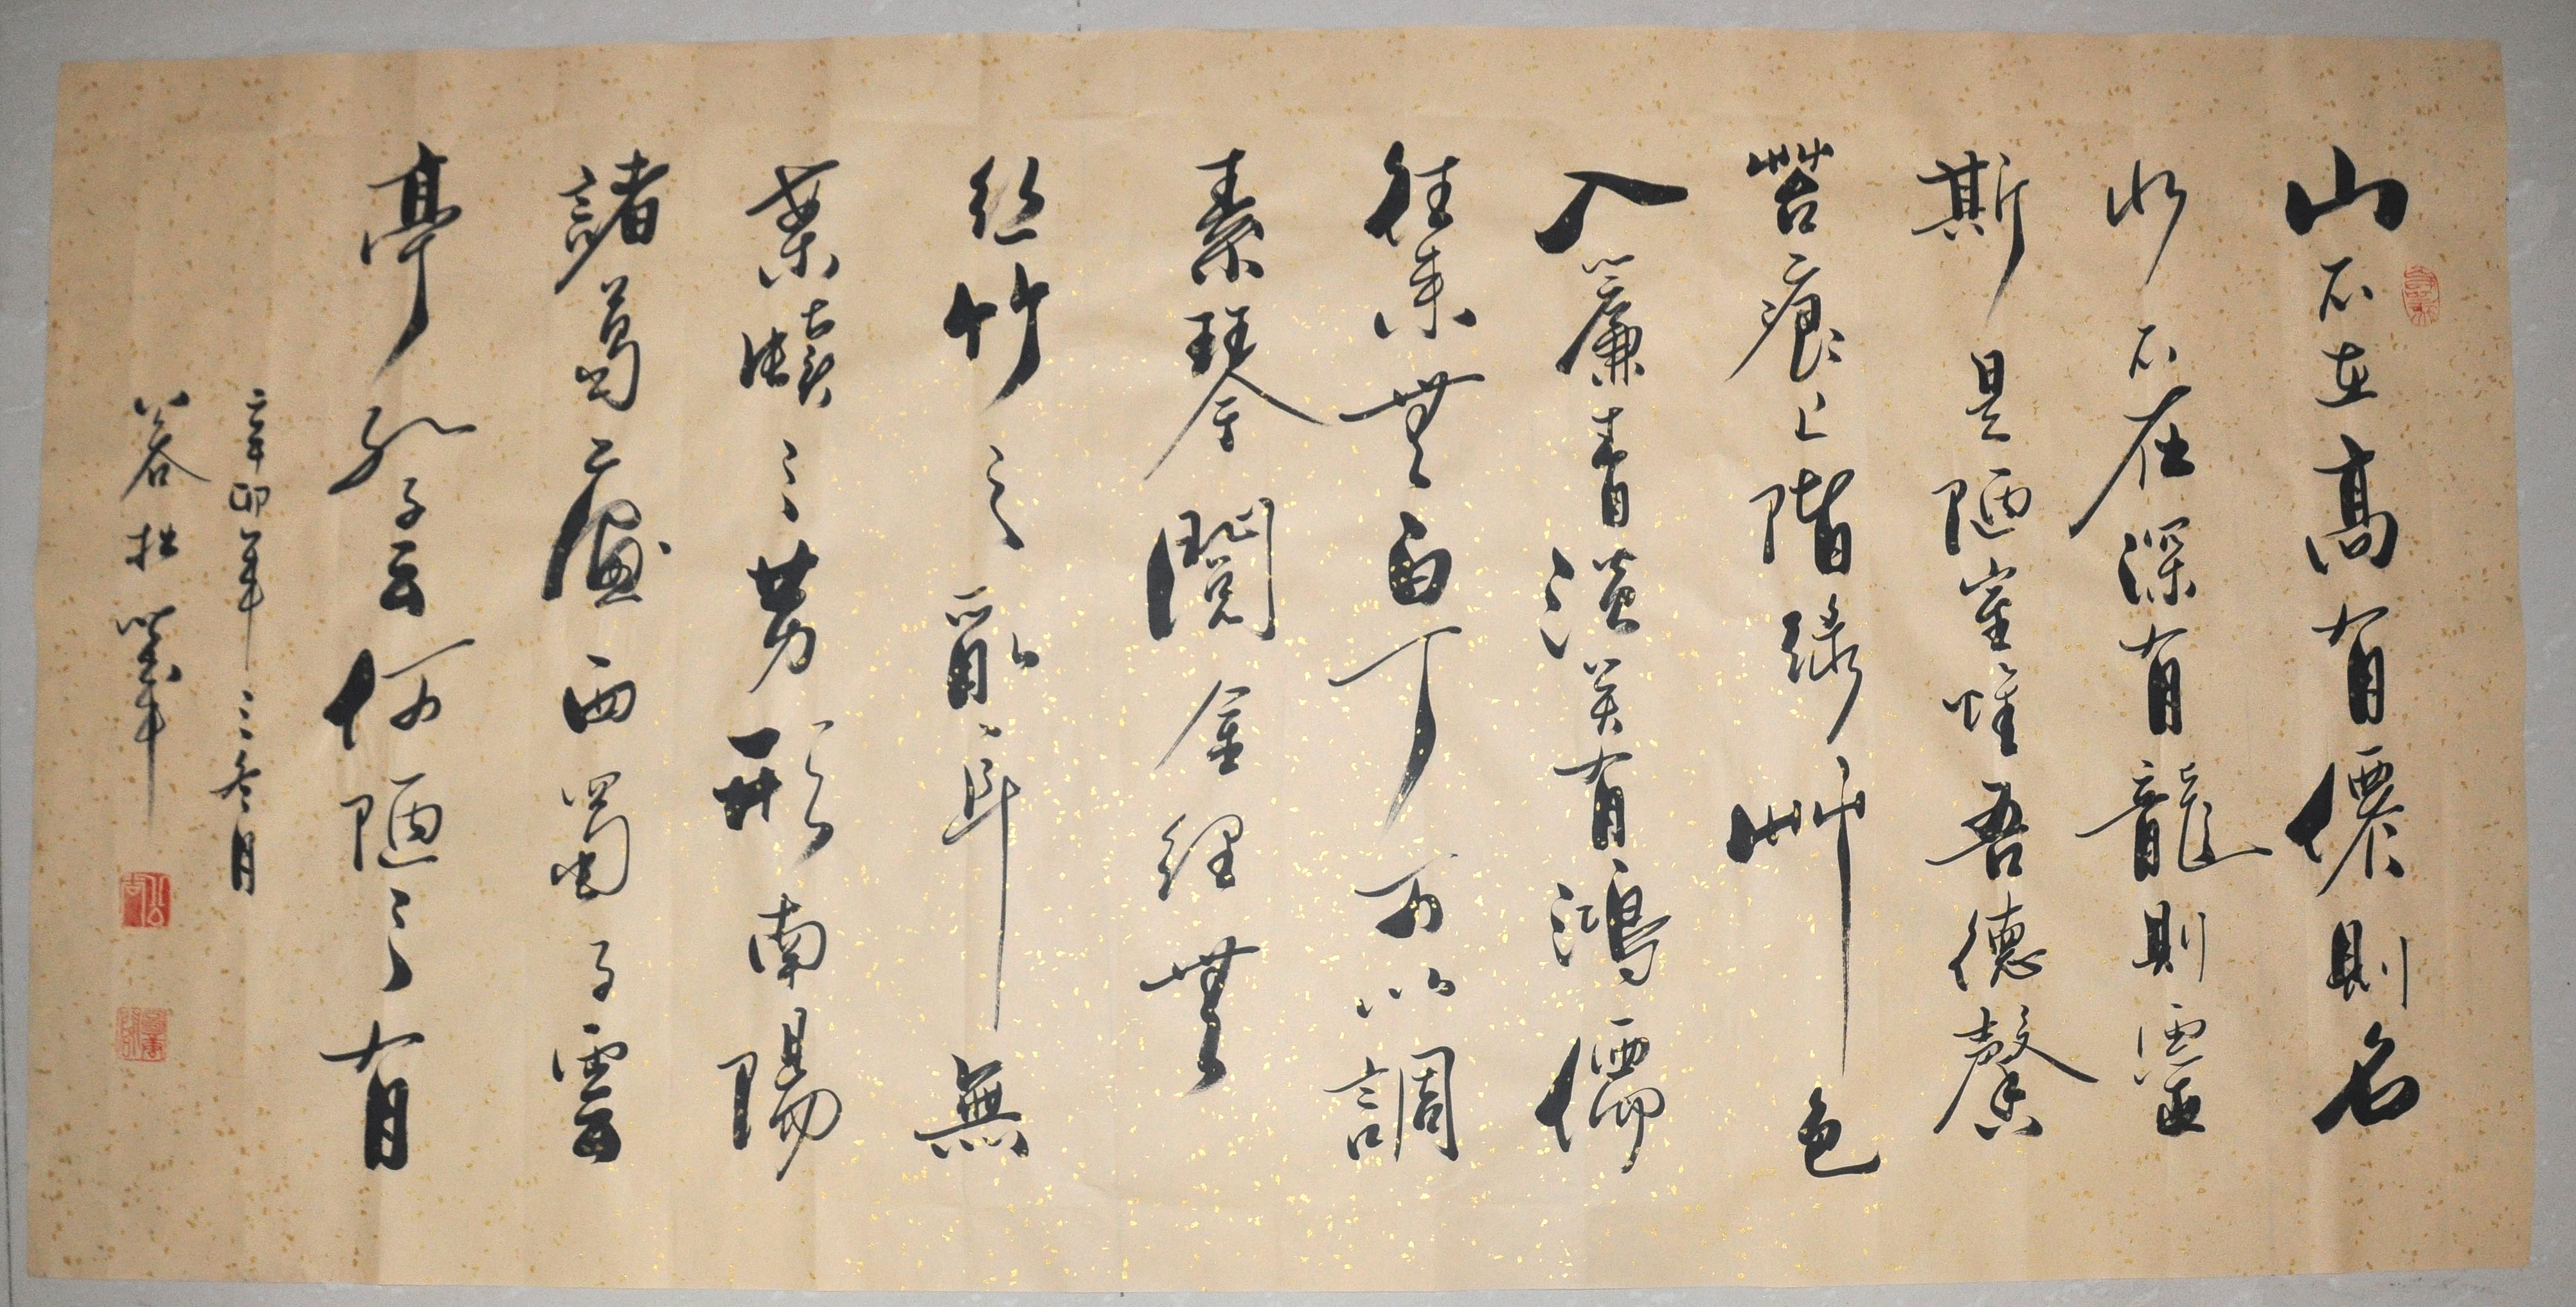 山不在高有僊則名
水不在深有龍則靈
斯是陋室惟吾德馨
苔痕上階綠艸色
入簾青談笑有鴻儒
往來無白丁可以調
素琴閱金經無
絲竹之亂耳無
案牘之勞形南陽
諸葛廬西蜀子雲
亭孔子云何陋之有
辛卯年三冬月
拙筆